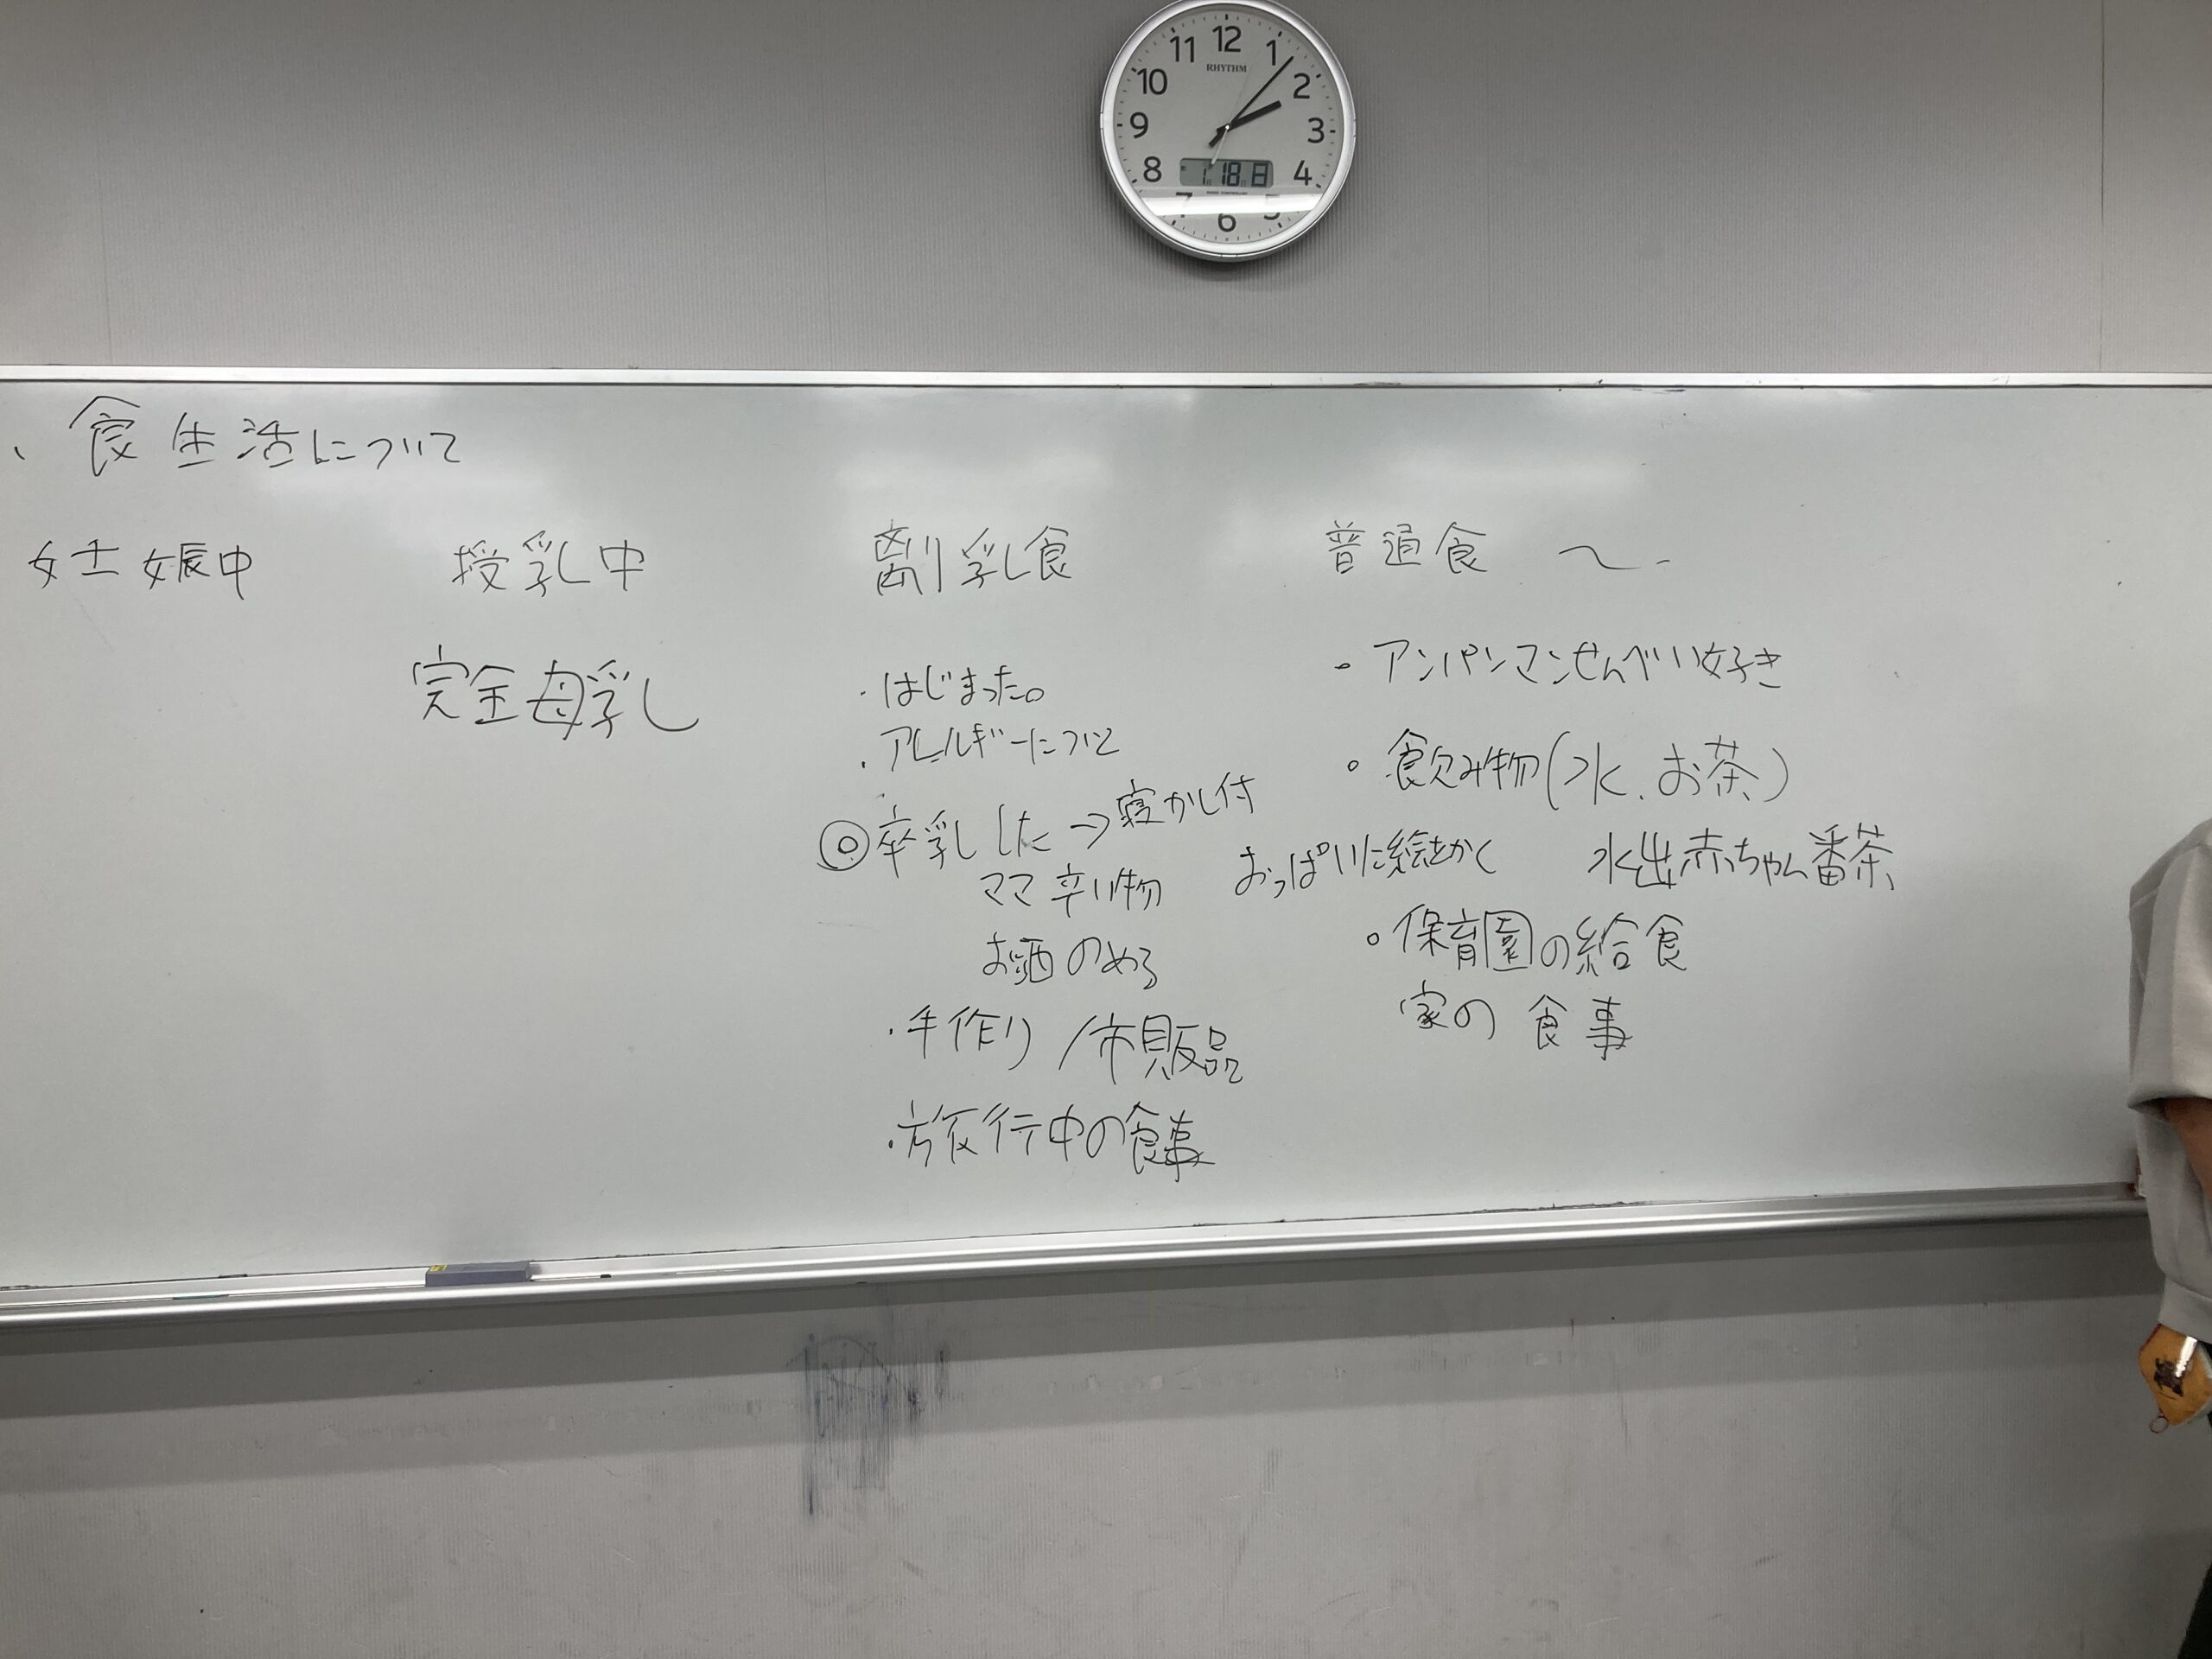 11 12 1
10 RHYTHM 2
9 3
8 1月18日 4
7 6 5
・食生活について
妊娠中 授乳中 離乳食 普通食 〜
完全母乳
・はじまった。
・アレルギーについて
◎卒乳した→寝かし付
おっぱいに絵をかく
ママ辛い物
お酒のめる
・手作り/市販品
・旅行中の食事
・アンパンマンせんべい好き
・飲み物(水、お茶)
水出赤ちゃん番茶
・保育園の給食
家の食事